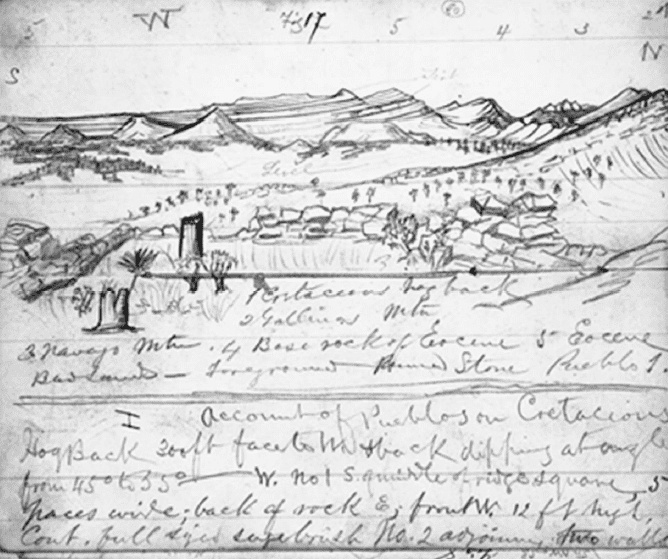 W Fig 17 80
5 5 4 3 2
S N
1 Cretaceous hog back
2 Gallinas Mtn
3 Navajo Mtn. 4 Base rock of Eocene 5 Eocene
Bad Lands — foreground Ruined Stone Pueblo 1
I account of Pueblos on Cretacious
Hog Back 300 ft face to W back dipping at ang
from 45° to 55° — W. No 1 S. middle of ridge square, 5
paces wide; back of rock E; front W. 12 ft high,
Cont. full sized sage brush No. 2 adjoining two walls